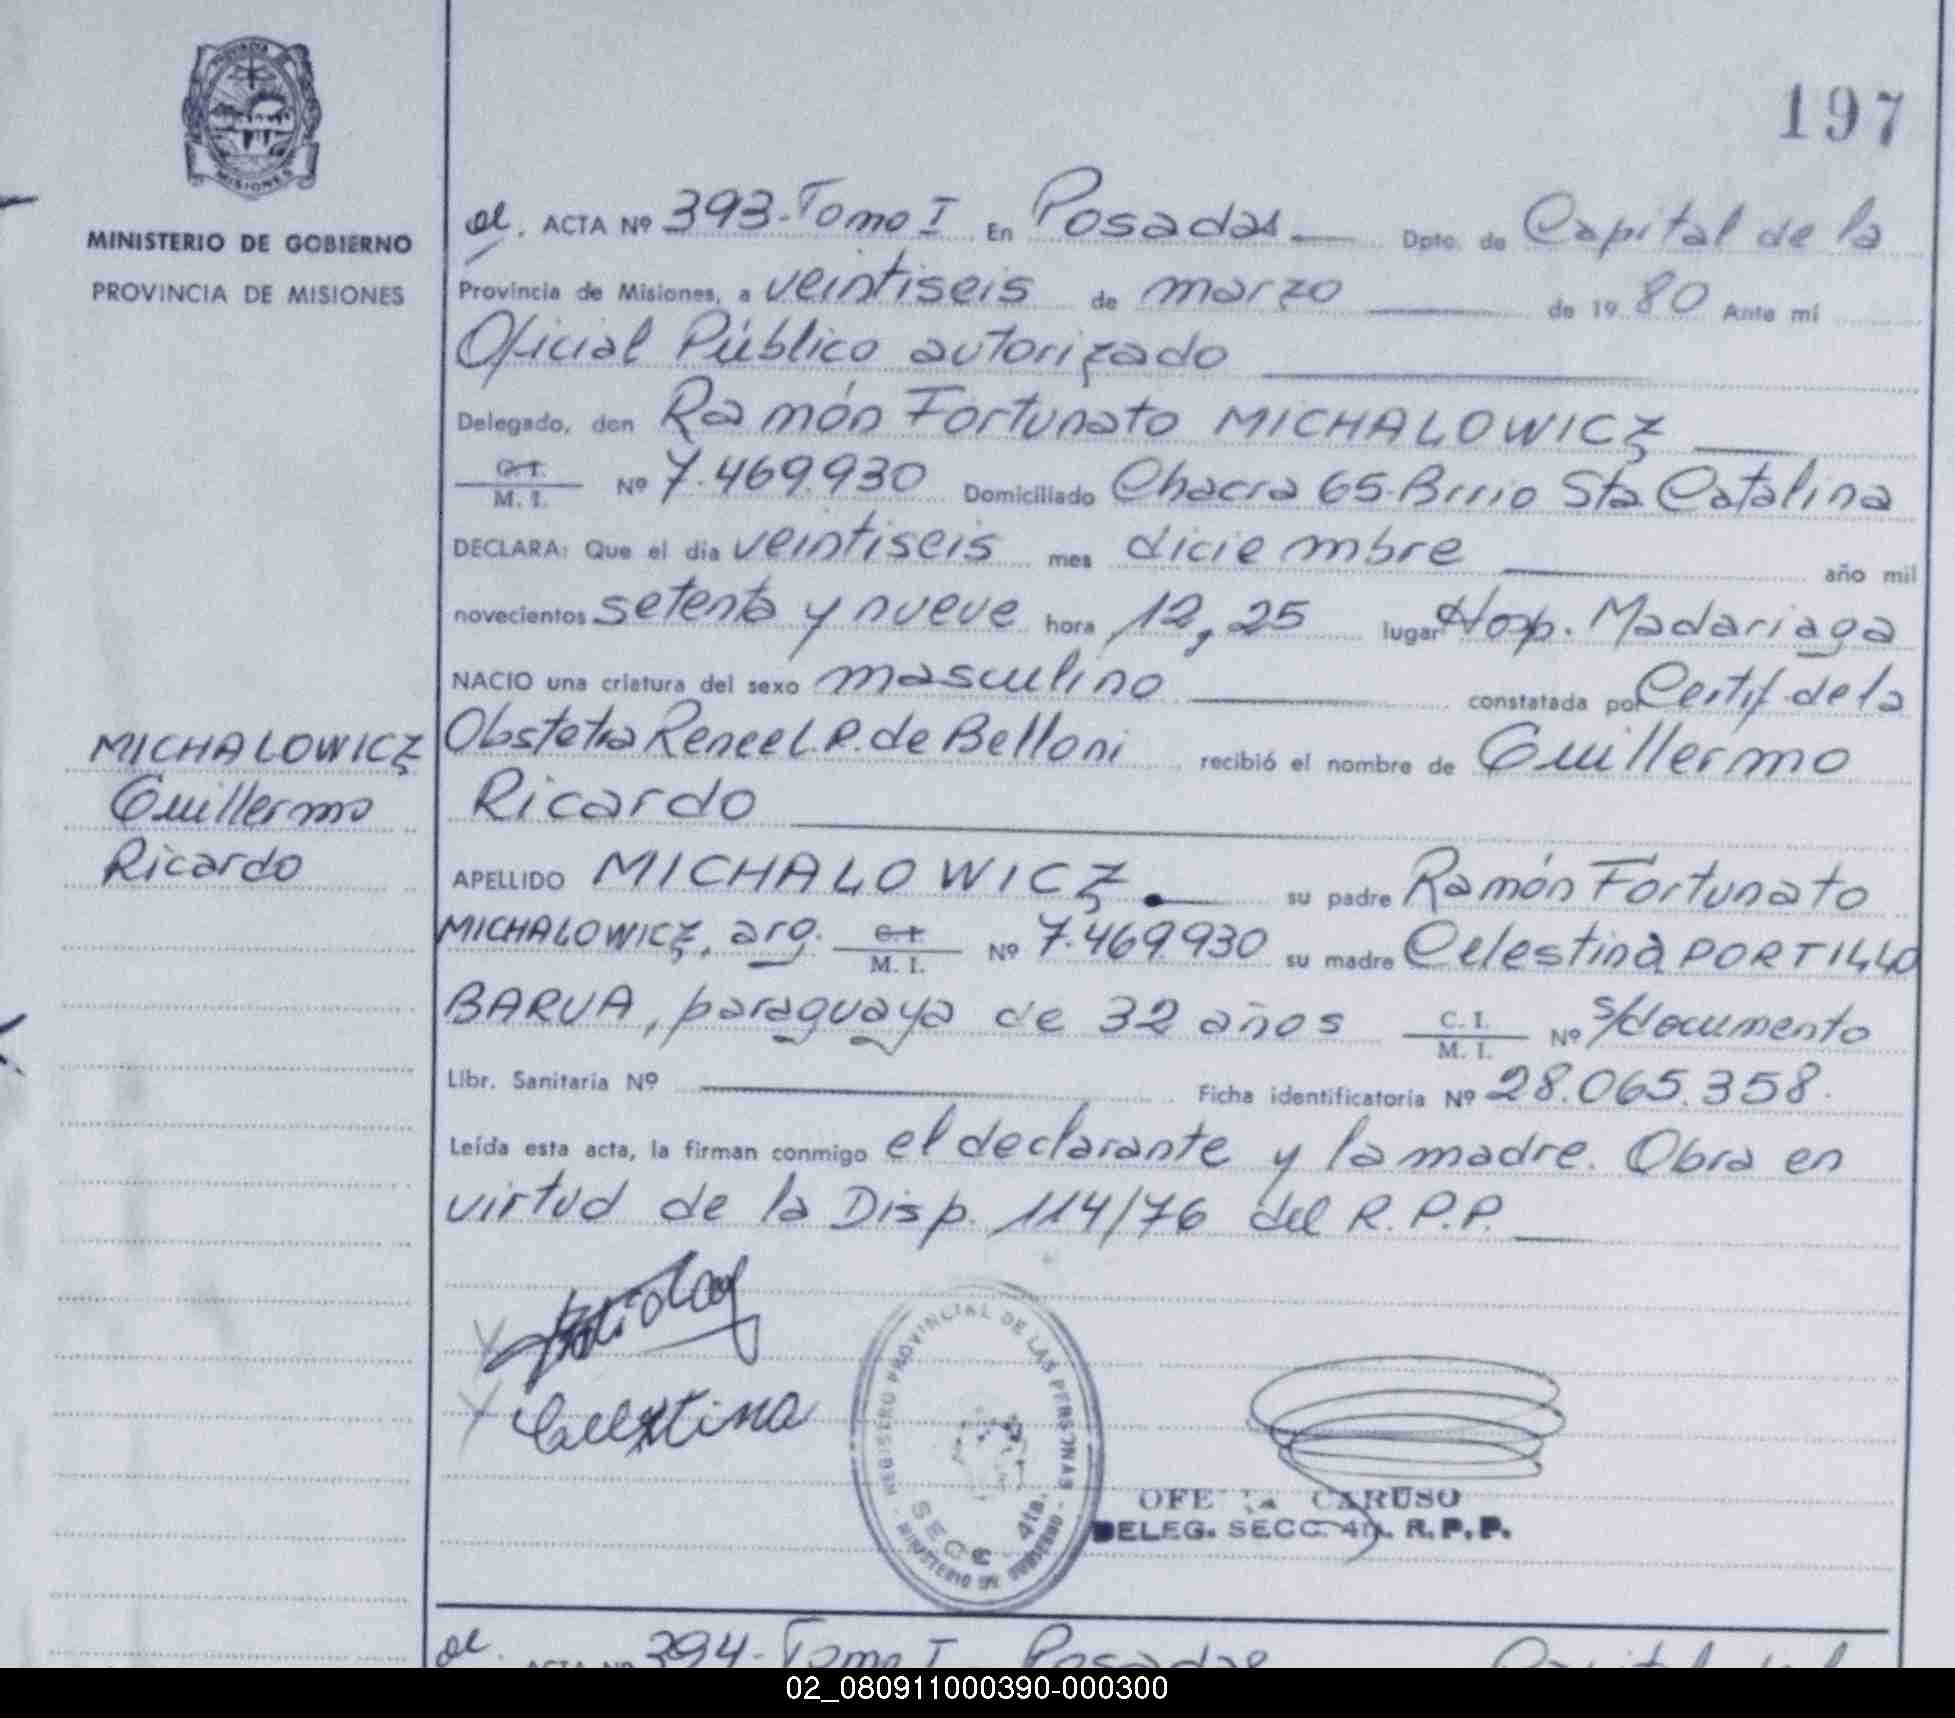 197
PROVINCIA DE
MISIONES
MINISTERIO DE GOBIERNO
PROVINCIA DE MISIONES
MICHALOWICZ
Guillermo
Ricardo
al. ACTA Nº 393-Tomo I En Posadas Dpto. de Capital de la
Provincia de Misiones, a veintiseis de marzo de 1980 Ante mi
Oficial Público autorizado
Delegado, don Ramón Fortunato MICHALOWICZ
C.I. M. I. Nº 7.469.930 Domiciliado Chacra 65-Brrio Sta Catalina
DECLARA: Que el día veintiseis mes diciembre año mil
novecientos setenta y nueve hora 12,25 lugar Hosp. Madariaga
NACIO una criatura del sexo masculino constatada por Certif de la
Obstetra Renee L.P. de Belloni recibió el nombre de Guillermo
Ricardo
APELLIDO MICHALOWICZ. su padre Ramón Fortunato
MICHALOWICZ, arg. C.I. M. I. Nº 7.469.930 su madre Celestina PORTILLO
BARUA, paraguaya de 32 años C.I. M. I. Nº s/documento
Libr. Sanitaria Nº Ficha identificatoria Nº 28.065.358.
Leída esta acta, la firman conmigo el declarante y la madre. Obra en
virtud de la Disp. 114/76 del R.P.P.
Celestina
REGISTRO PROVINCIAL DE LAS PERSONAS
SECC. 4ta.
MINISTERIO DE GOBIERNO
CARUSO
DELEG. SECC. 4ta. R.P.P.
al. ACTA Nº 394-Tomo I Posadas
02_080911000390-000300